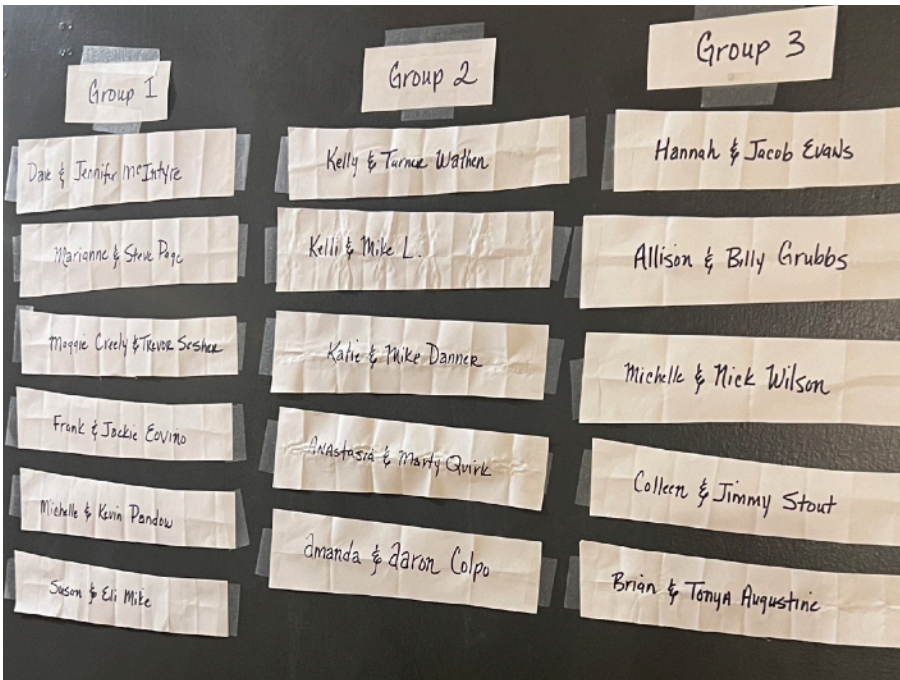 Group 1
Dave & Jennifer McIntyre
Marianne & Steve Page
Maggie Creely & Trevor Sesher
Frank & Jackie Eovino
Michelle & Kevin Pandow
Susan & Eli Mike
Group 2
Kelly & Turner Wathen
Kelli & Mike L.
Katie & Mike Danner
Anastasia & Marty Quirk
amanda & aaron Colpo
Group 3
Hannah & Jacob Evans
Allison & Billy Grubbs
Michelle & Nick Wilson
Colleen & Jimmy Stout
Brian & Tonya Augustine